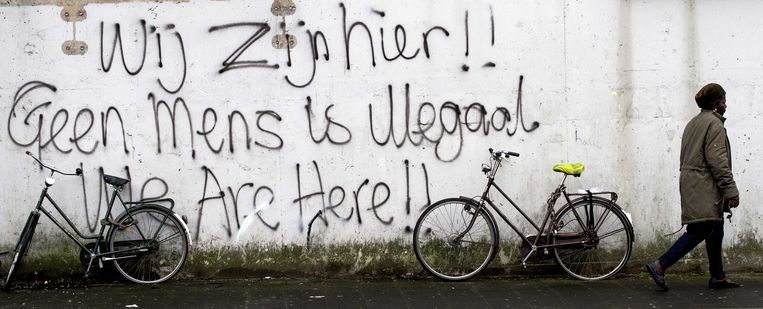 Wij Zijn hier!!
Geen Mens is illegaal
We Are Here!!